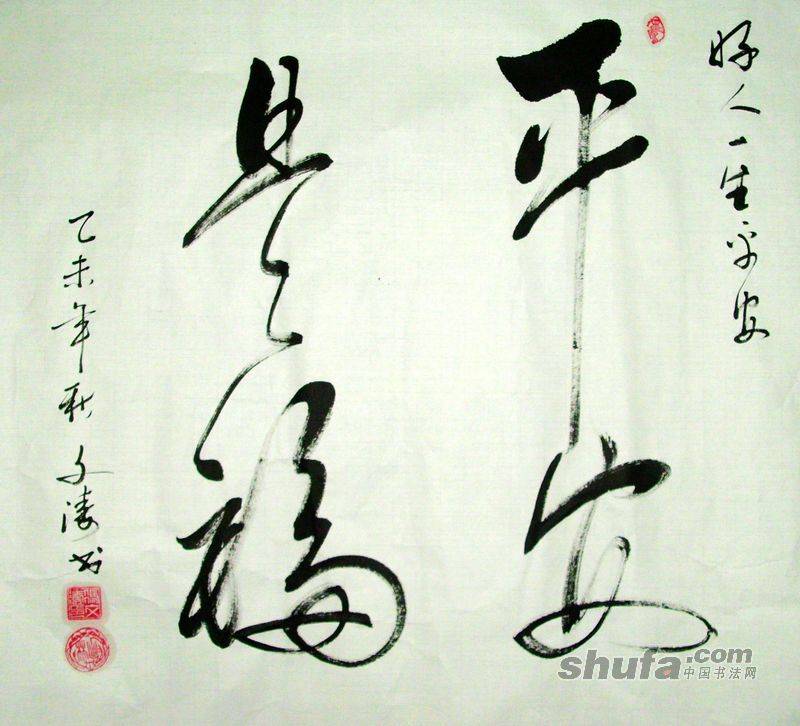 好人一生平安
平安
是福
乙未年秋文涛书
shufa.com
中国书法网